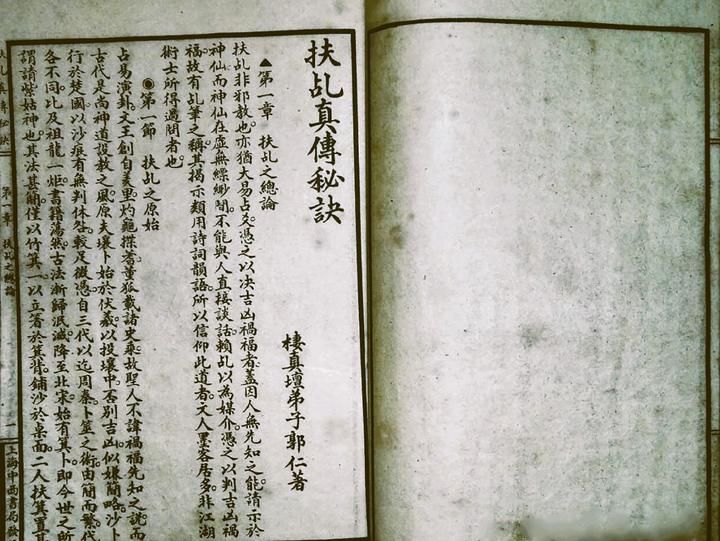 扶乩真傳秘訣
棲真壇弟子郭仁著
▲第一章　扶乩之總論
扶乩非邪教也。亦猶大易占爻。憑之以决吉凶禍福者。蓋因人無先知之能。請示於
神仙。而神仙在虛無縹緲間。不能與人直接談話。賴乩以為媒介。憑之以判吉凶禍
福。故有乩筆之稱。其揭示類用詩詞韻語。所以信仰此道者。文人墨客居多。非江湖
術士所得過問者也。
◉第一節　扶乩之原始
占易演卦。文王創自羑里。灼龜揲蓍。董狐載諸史乘。故聖人不諱禍福先知之說。而
古代是尚神道設教之風。原夫壤卜始於伏羲。以投壤中否別吉凶。似嫌簡略。沙卜
行於楚國。以沙痕有無判休咎。較足徵憑。自三代以迄周秦。卜筮之術。由簡而繁。代
各不同。比及祖龍一炬。書籍蕩然。古法漸歸泯滅。降至北宋。始有箕卜。即今世之所
謂請紫姑神也。其法甚簡。僅以竹箕一。以立著於箕背。鋪沙於桌面。二人扶箕置其
扶乩真傳秘訣
第一章　扶乩之總論
一
上海中西書局發